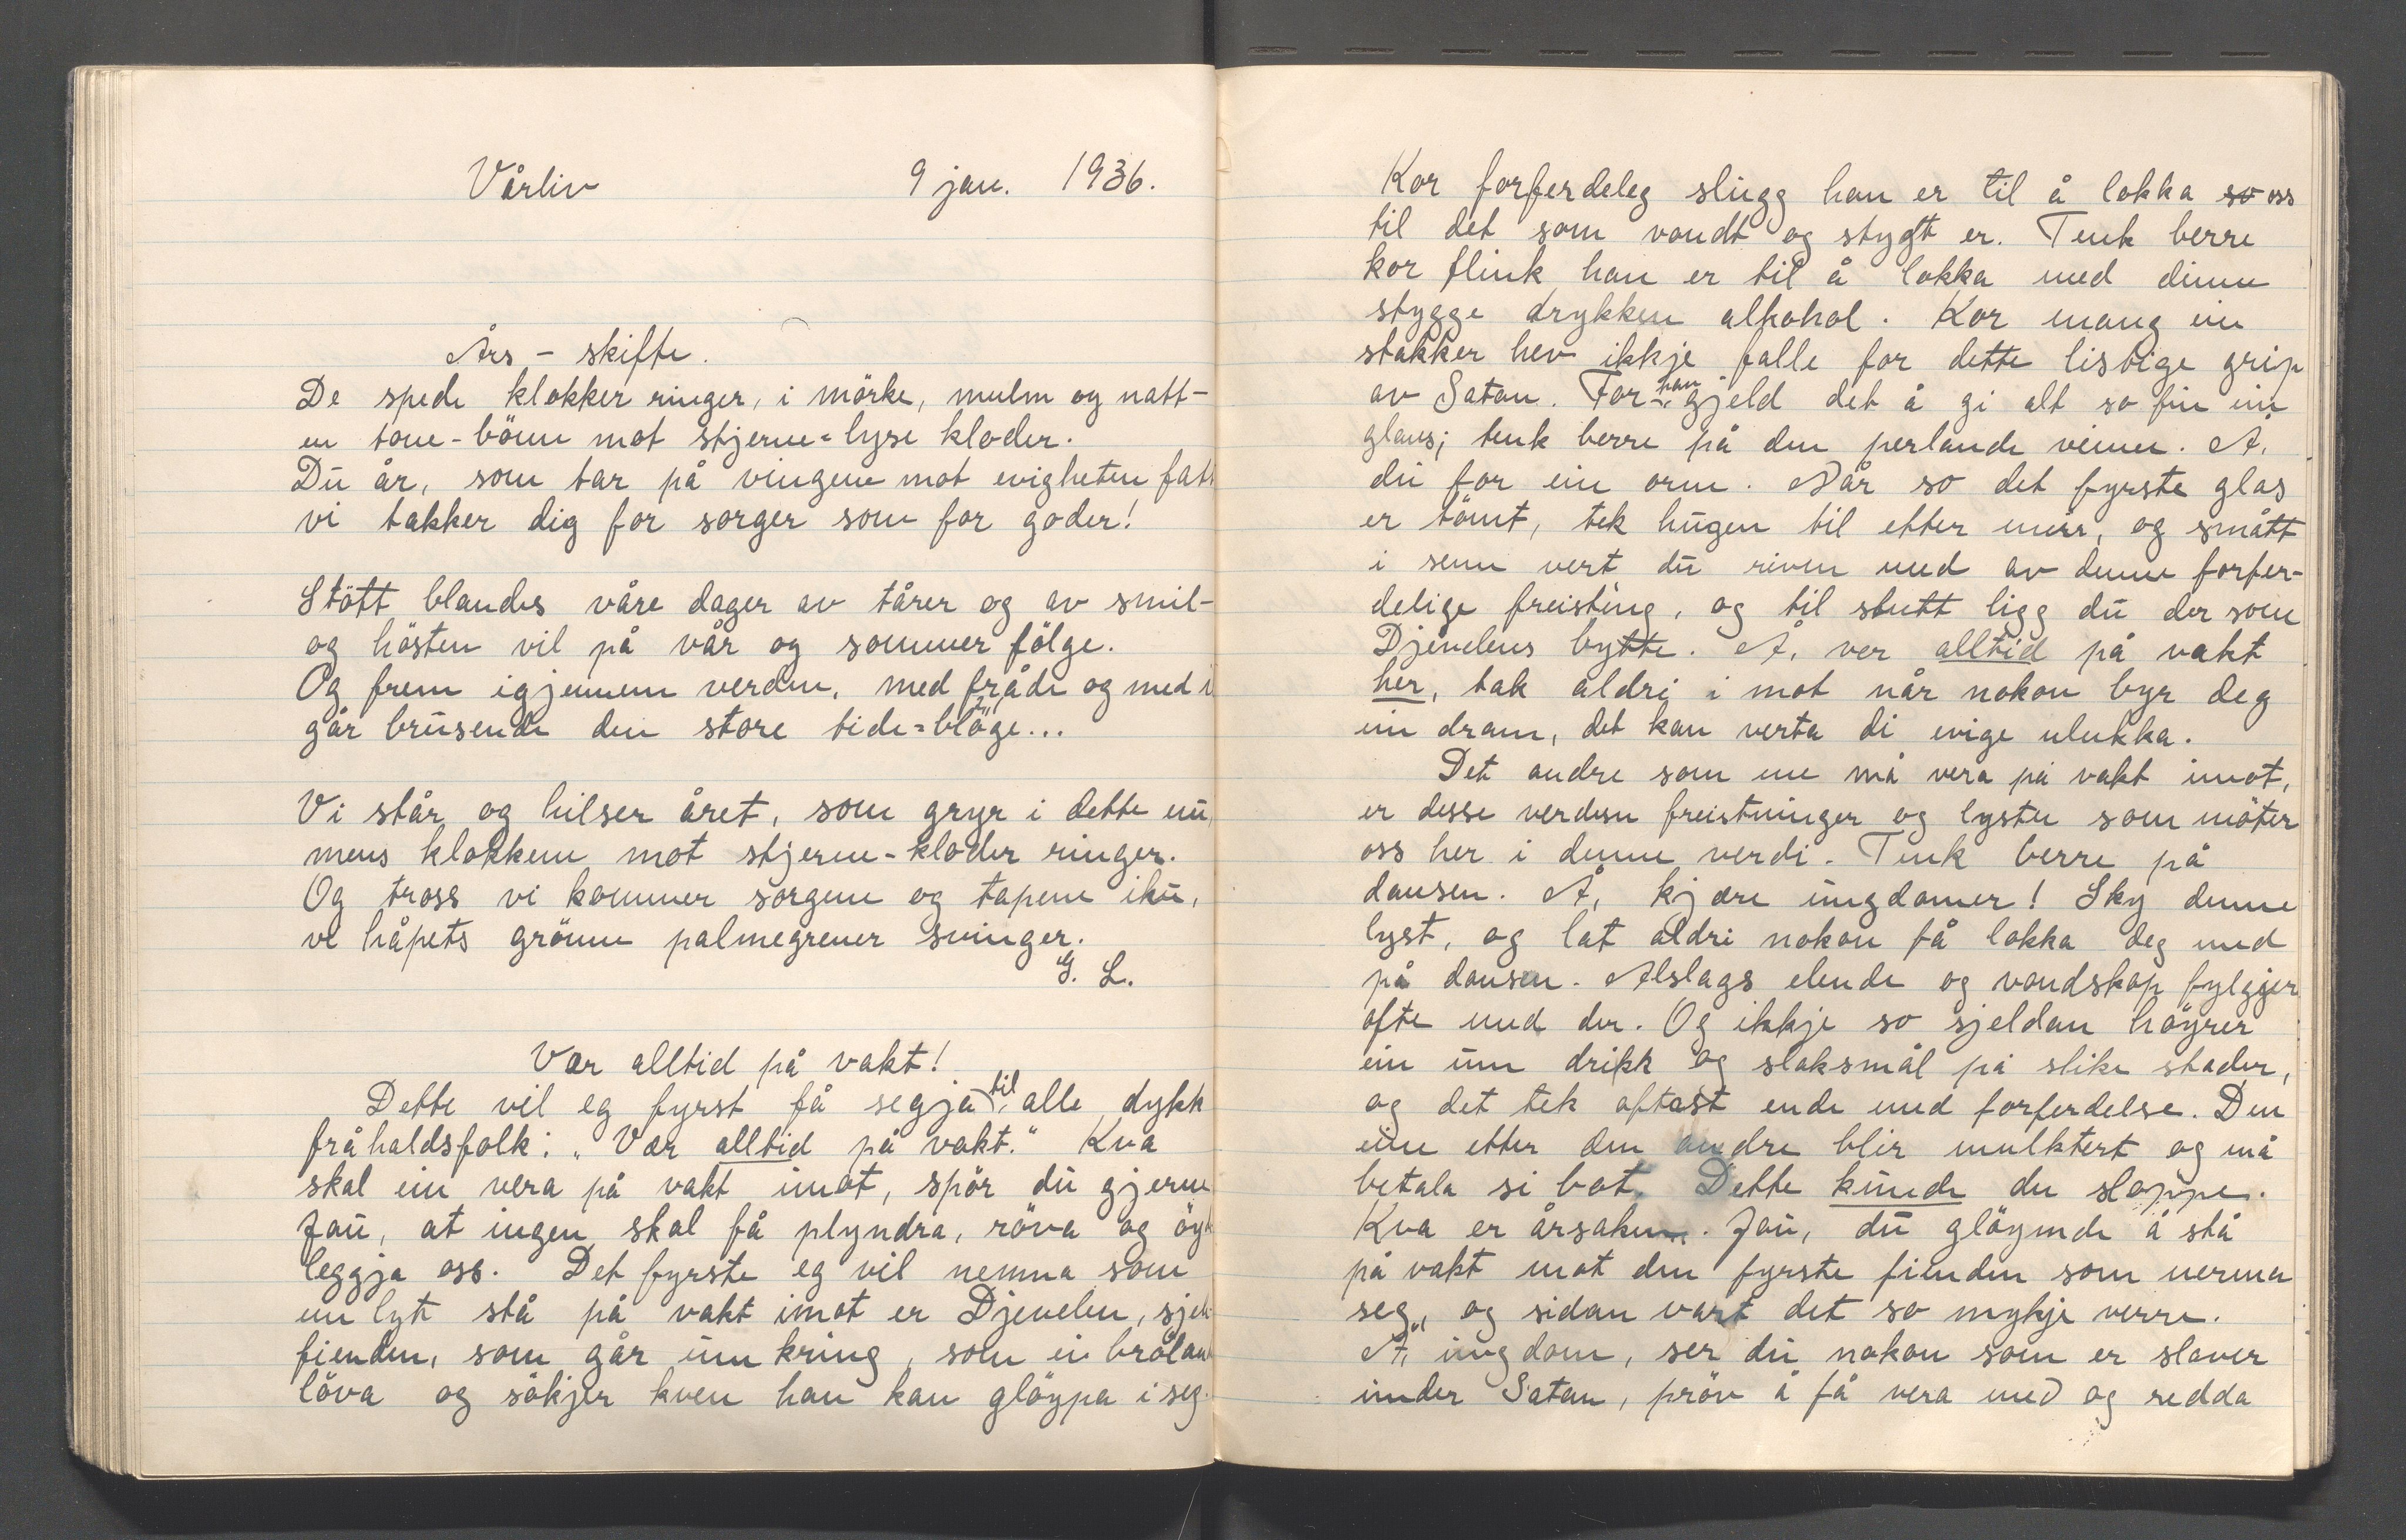 Vårliv 9 jan. 1936.
Års - skifte.
De spede klokker ringer, i mörke, mulm og natt-
en tone-bönn mot stjerne=lyse kloder.
Du år, som tar på vingene mot evigheten fatt
vi takker dig for sorger som for goder!
Stött blandes våre dager av tårer og av smil-
og hösten vil på vår og sommer fölge.
Og frem igjennem verden, med fråde og med i
går brusende den store tide=bölge...
Vi står og hilser året, som gryr i dette nu,
mens klokkene mot stjerne-kloder ringer.
Og tross vi kommer sorgene og tapene ihu,
vi håpets grönne palmegrener svinger.
G. L.
Vær alltid på vakt!
Dette vil eg fyrst få segja til alle dykk
fråhaldsfolk: "Vær alltid på vakt." Kva
skal ein vera på vakt imot, spör du gjerne
Jau, at ingen skal få plyndra, röva og öy
leggja oss. Det fyrste eg vil nemna som
ein lyt stå på vakt imot er Djevelen, sjele
fienden, som går umkring, som ei brölan
löva og sökjer kven han kan glöypa i seg.
Kor forferdeleg slugg han er til å lokka so oss
til det som vondt og stygt er. Tenk berre
kor flink han er til å lokka med dinne
stygge drykken alkohol. Kor mang ein
stakker hev ikkje falle for dette listige grip
av Satan. For han gjeld det å gi alt so fin ein
glans; tenk berre på den perlande vinen. Å,
du for ein orm. Når so det fyrste glas
er tömt, tek hugen til etter meir, og smått
i senn vert du riven med av denne forfer-
delige freisting, og til slutt ligg du der som
Djevelens bytte. Å, ver alltid på vakt
her, tak aldri i mot når nokon byr deg
ein dram, det kan verta di evige ulukka.
Det andre som me må vera på vakt imot,
er desse verdsn freistninger og lyster som möter
oss her i denne verdi. Tenk berre på
dansen. Å, kjære ungdomer! Sky denne
lyst, og lat aldri nokon få lokka deg med
på dansen. Alslags elende og vondskap fylgjer
ofte med der. Og ikkje so sjeldan höyrer
ein um drikk og slaksmål på slike stader,
og det tek oftast ende med forferdelse. Den
eine etter den andre blir mulktert og må
betala si bot. Dette kunde du sloppe.
Kva er årsaken. Jau, du glöymde å stå
på vakt mot den fyrste fienden som nerma
seg, og sidan vart det so mykje verre.
Å, ungdom, ser du nokon som er slaver
under Satan, pröv å få vera med og redda